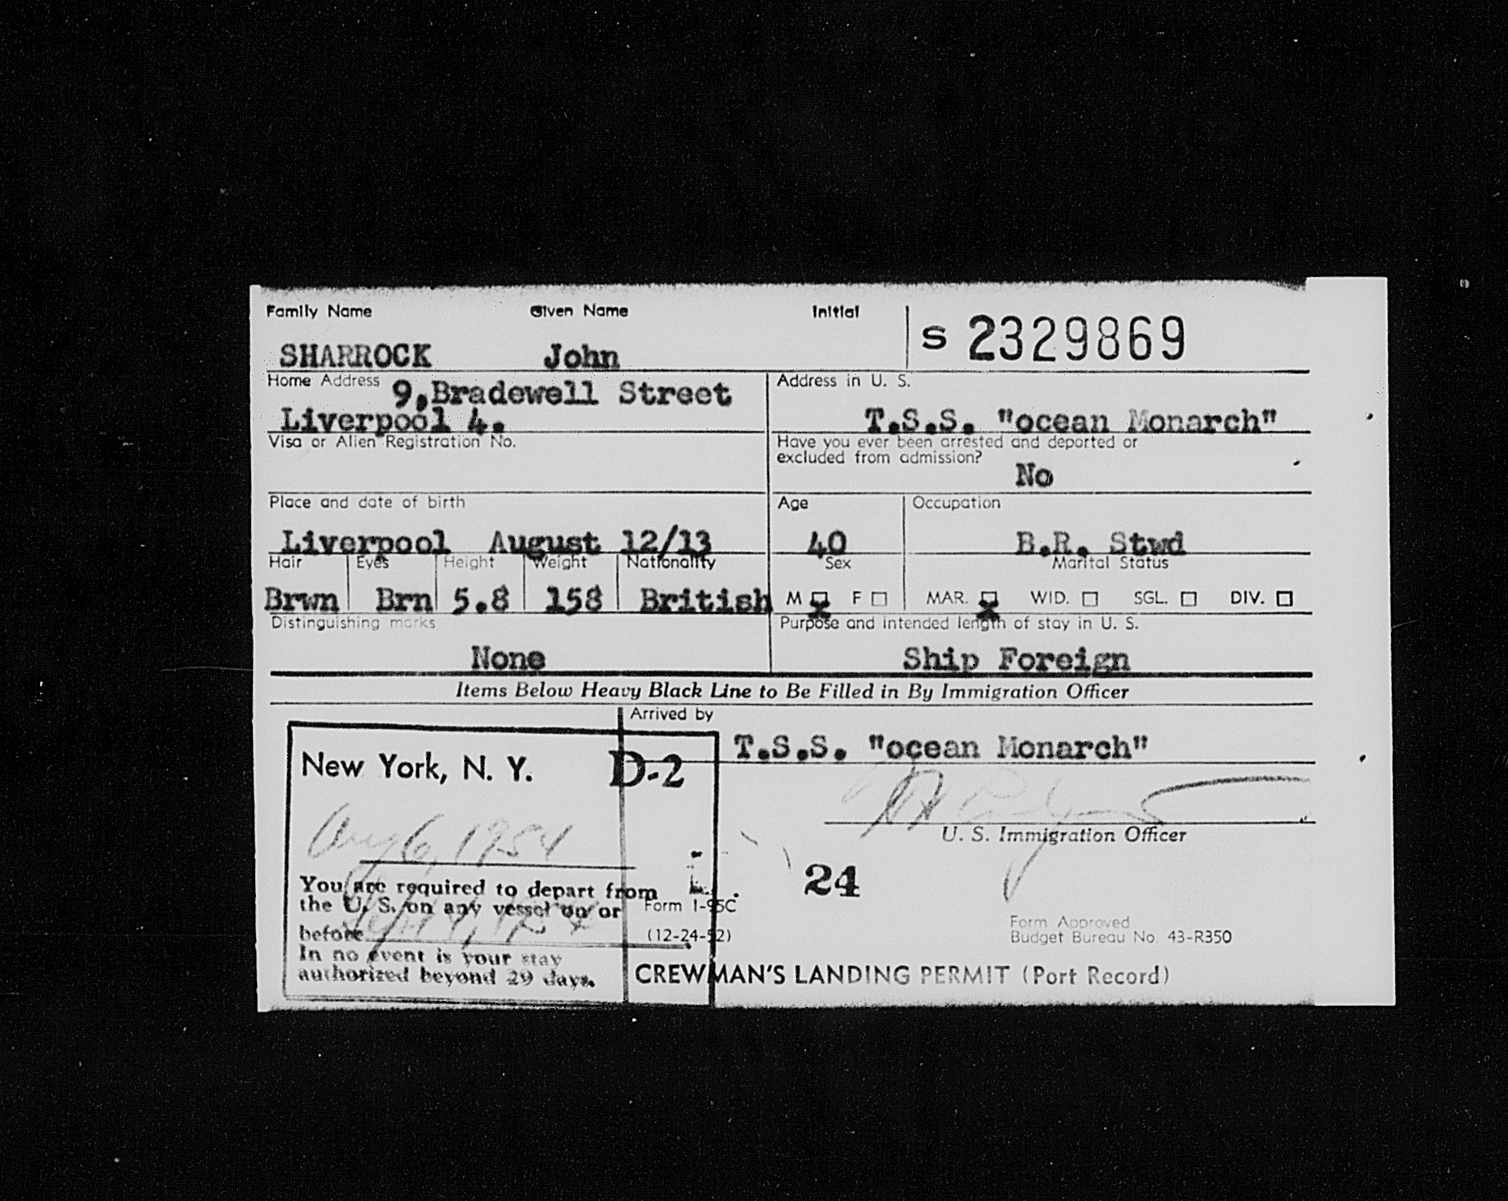 Family Name Given Name Initial
S 2329869
SHARROCK John
Home Address 9,Bradewell Street
Liverpool 4.
Address in U. S.
T.S.S. "ocean Monarch"
Visa or Alien Registration No.
Have you ever been arrested and deported or
excluded from admission?
No
Place and date of birth
Liverpool August 12/13
Age
40
Occupation
B.R. Stwd
Hair Eyes Height Weight Nationality
Brwn Brn 5.8 158 British
Sex
M F
Marital Status
MAR. WID. SGL. DIV.
Distinguishing marks
None
Purpose and intended length of stay in U. S.
Ship Foreign
Items Below Heavy Black Line to Be Filled in By Immigration Officer
Arrived by
T.S.S. "ocean Monarch"
New York, N. Y. D-2
Aug 6, 1954
U. S. Immigration Officer
24
You are required to depart from
the U. S. on any vessel on or
before
In no event is your stay
authorized beyond 29 days.
Form I-95C
(12-24-52)
Form Approved
Budget Bureau No. 43-R350
CREWMAN'S LANDING PERMIT (Port Record)